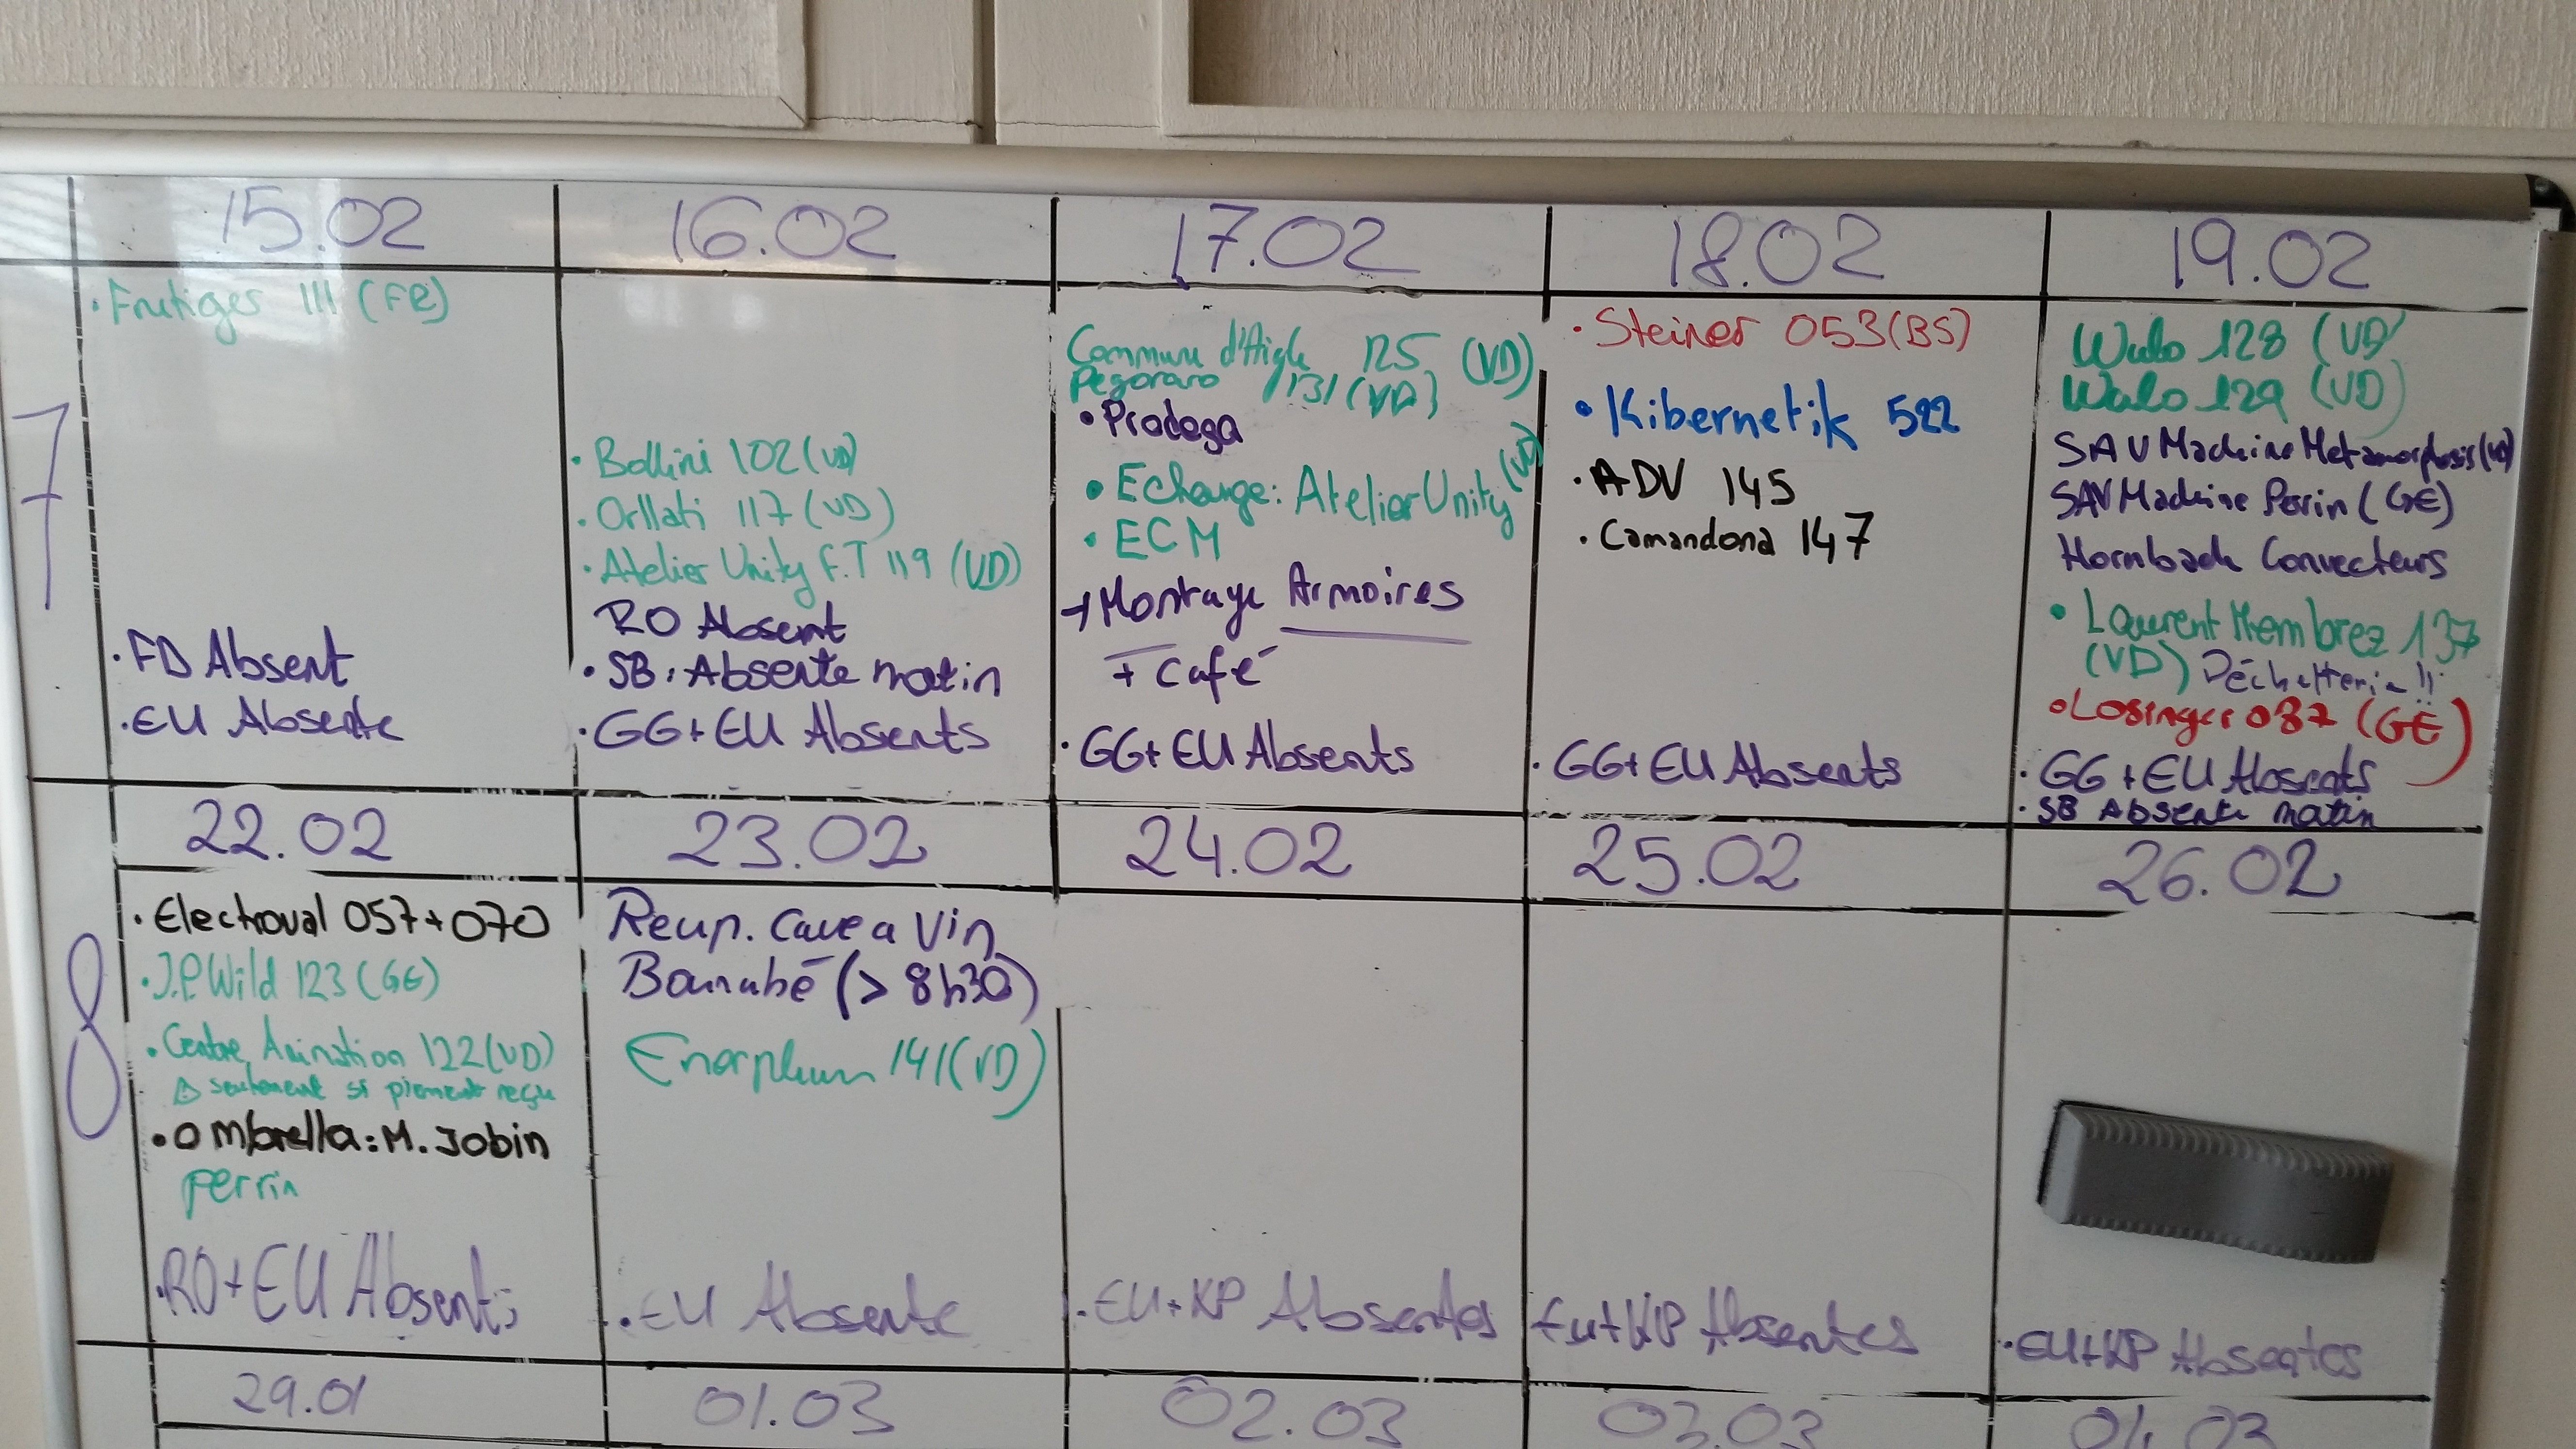 15.02
16.02
17.02
18.02
19.02
7
. Frutiger 111 (FR)
. FD Absent
. EU Absente
. Bollini 102 (VD)
. Orllati 117 (VD)
. Atelier Unity F.T 119 (VD)
RO Absent
. SB: Absente matin
. GG+EU Absents
Commune d'Aigle 125 (VD)
Pegoraro 131 (VD)
• Prodega
• Echange: Atelier Unity (VD)
• ECM
→ Montage Armoires
+ Café
. GG+EU Absents
. Steiner 053 (BS)
• Kibernetik 522
. ADV 145
. Camandona 147
. GG+EU Absents
Walo 128 (VD)
Walo 129 (VD)
SAV Machine Metamorphosis (VD)
SAV Machine Perin (GE)
Hornbach Convecteurs
• Laurent Membrez 137
(VD) Déchetterie !!
• Losinger 087 (GE)
. GG+EU Absents
. SB Absente matin
22.02
23.02
24.02
25.02
26.02
8
. Electroval 057+070
. J.P Wild 123 (GE)
. Centre Animation 122 (VD)
⚠ seulement si piement reçu
• Ombrella: M. Jobin
Perrin
. RO+EU Absents
Reup. Cave a Vin
Barnabé (> 8h30)
141 (VD)
. EU Absente
. EU+KP Absentes
EU+KP Absentes
. EU+KP Absentes
29.01
01.03
02.03
03.03
04.03